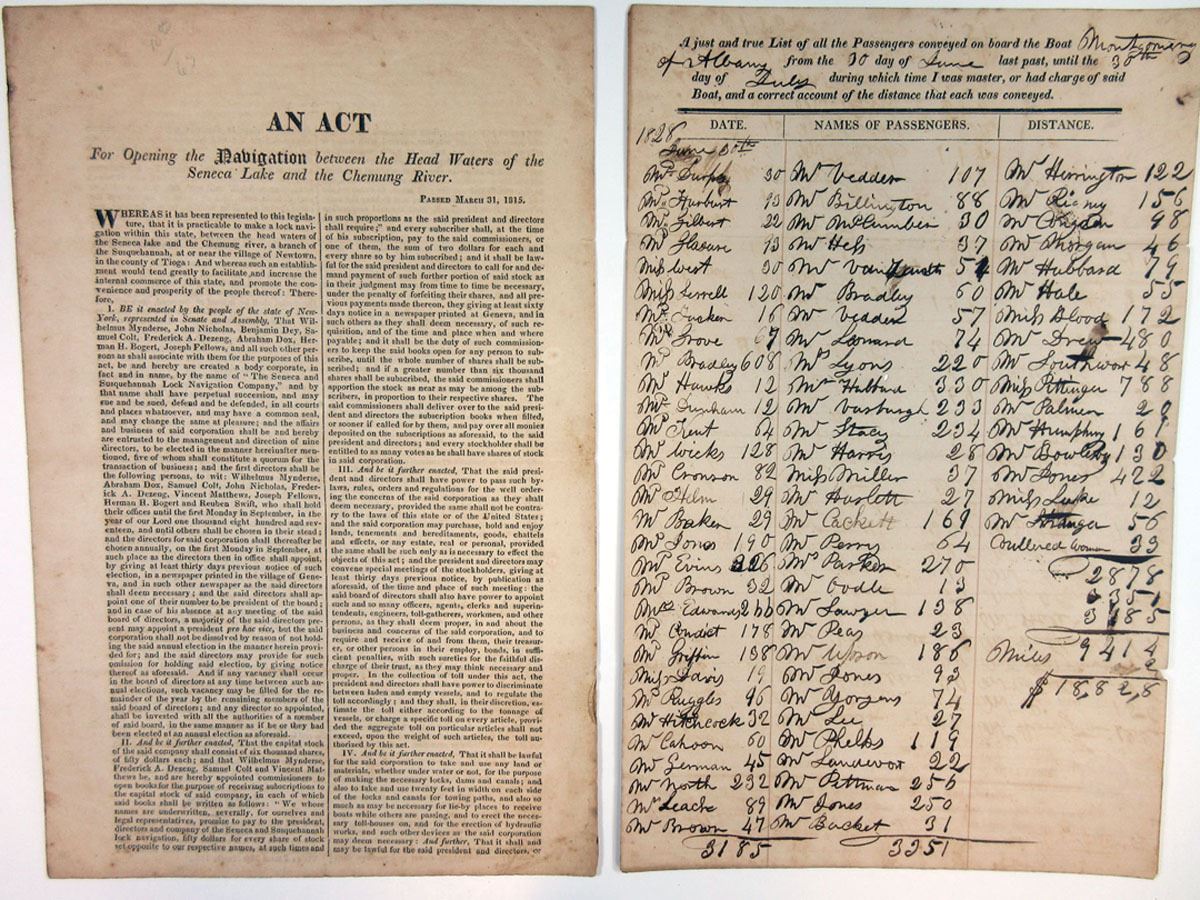 AN ACT
For Opening the Navigation between the Head Waters of the
Seneca Lake and the Chemung River.
Passed March 31, 1815.
WHEREAS it has been represented to this legisla-
ture, that it is practicable to make a lock navi-
gation within this state, between the head waters of
the Seneca lake and the Chemung river, a branch of
the Susquehannah, at or near the village of Newtown,
in the county of Tioga: And whereas such an establish-
ment would tend greatly to facilitate and increase the
internal commerce of this state, and promote the con-
venience and prosperity of the people thereof: There-
fore,
I. BE it enacted by the people of the state of New-
York, represented in Senate and Assembly, That Wil-
helmus Mynderse, John Nicholas, Benjamin Dey, Sa-
muel Colt, Frederick A. Dezeng, Abraham Dox, Her-
man H. Bogert, Joseph Fellows, and all such other per-
sons as shall associate with them for the purposes of this
act, be and hereby are created a body corporate, in
fact and in name, by the name of "The Seneca and
Susquehannah Lock Navigation Company," and by
that name shall have perpetual succession, and may
sue and be sued, defend and be defended, in all courts
and places whatsoever, and may have a common seal,
and may change the same at pleasure; and the affairs
and business of said corporation shall be and hereby
are entrusted to the management and direction of nine
directors, to be elected in the manner hereinafter men-
tioned, five of whom shall constitute a quorum for the
transaction of business; and the first directors shall be
the following persons, to wit: Wilhelmus Mynderse,
Abraham Dox, Samuel Colt, John Nicholas, Freder-
ick A. Dezeng, Vincent Matthews, Joseph Fellows,
Herman H. Bogert and Reuben Swift, who shall hold
their offices until the first Monday in September, in the
year of our Lord one thousand eight hundred and sev-
enteen, and until others shall be chosen in their stead;
and the directors for said corporation shall thereafter be
chosen annually, on the first Monday in September, at
such place as the directors then in office shall appoint,
by giving at least thirty days previous notice of such
election, in a newspaper printed in the village of Gene-
va, and in such other newspaper as the said directors
shall deem necessary; and the said directors shall ap-
point one of their number to be president of the board;
and in case of his absence at any meeting of the said
board of directors, a majority of the said directors pre-
sent may appoint a president pro hac vice, but the said
corporation shall not be dissolved by reason of not hold-
ing the said annual election in the manner herein provi-
ded for; and the said directors may provide for such
omission for holding said election, by giving notice
thereof as aforesaid. And if any vacancy shall occur
in the board of directors at any time between such an-
nual elections, such vacancy may be filled for the re-
mainder of the year by the remaining members of the
said board of directors; and any director so appointed,
shall be invested with all the authorities of a member
of said board, in the same manner as if he or they had
been elected at an annual election as aforesaid.
II. And be it further enacted, That the capital stock
of the said company shall consist of six thousand shares,
of fifty dollars each; and that Wilhelmus Mynderse,
Frederick A. Dezeng, Samuel Colt and Vincent Mat-
thews be, and are hereby appointed commissioners to
open books for the purpose of receiving subscriptions to
the capital stock of said company, in each of which
said books shall be written as follows: "We whose
names are underwritten, severally, for ourselves and
legal representatives, promise to pay to the president,
directors and company of the Seneca and Susquehannah
lock navigation, fifty dollars for every share of stock
set opposite to our respective names, at such times and
in such proportions as the said president and directors
shall require;" and every subscriber shall, at the time
of his subscription, pay to the said commissioners, or
one of them, the sum of two dollars for each and
every share so by him subscribed; and it shall be law-
ful for the said president and directors to call for and de-
mand payment of such further portion of said stock as
in their judgment may from time to time be necessary,
under the penalty of forfeiting their shares, and all pre-
vious payments made thereon, they giving at least sixty
days notice in a newspaper printed at Geneva, and in
such others as they shall deem necessary, of such re-
quisition, and of the time and place when and where
payable; and it shall be the duty of such commission-
ers to keep the said books open for any person to sub-
scribe, until the whole number of shares shall be sub-
scribed; and if a greater number than six thousand
shares shall be subscribed, the said commissioners shall
apportion the stock as near as may be among the sub-
scribers, in proportion to their respective shares. The
said commissioners shall deliver over to the said presi-
dent and directors the subscription books when filled,
or sooner if called for by them, and pay over all monies
deposited on the subscriptions as aforesaid, to the said
president and directors; and every stockholder shall be
entitled to as many votes as he shall have shares of stock
in said corporation.
III. And be it further enacted, That the said presi-
dent and directors shall have power to pass such by-
laws, rules, orders and regulations for the well order-
ing the concerns of the said corporation as they shall
deem necessary, provided the same shall not be contra-
ry to the laws of this state or of the United States;
and the said corporation may purchase, hold and enjoy
lands, tenements and hereditaments, goods, chattels
and effects, or any estate, real or personal, provided
the same shall be such only as is necessary to effect the
objects of this act; and the president and directors may
convene special meetings of the stockholders, giving at
least thirty days previous notice, by publication as
aforesaid, of the time and place of such meeting: the
said board of directors shall also have power to appoint
such and so many officers, agents, clerks and superin-
tendents, engineers, toll-gatherers, workmen, and other
persons, as they shall deem proper, in and about the
business and concerns of the said corporation, and to
require and receive of and from them, their treasur-
er, or other persons in their employ, bonds, in suffi-
cient penalties, with such sureties for the faithful dis-
charge of their trust, as they may think necessary and
proper. In the collection of toll under this act, the
president and directors shall have power to discriminate
between laden and empty vessels, and to regulate the
toll accordingly; and they shall, in their discretion, es-
timate the toll either according to the tonnage of
vessels, or charge a specific toll on every article, provi-
ded the aggregate toll on particular articles shall not
exceed, upon the weight of such articles, the toll au-
thorized by this act.
IV. And be it further enacted, That it shall be lawful
for the said corporation to take and use any land or
materials, whether under water or not, for the purpose
of making the necessary locks, dams and canals; and
also to take and use twenty feet in width on each side
of the locks and canals for towing paths, and also so
much as may be necessary for lie-by places to receive
boats while others are passing, and to erect the neces-
sary toll-houses on, and for the erection of hydraulic
works, and such other devices as the said corporation
may deem necessary: And further, That it shall and
may be lawful for the said president and directors, or
A just and true List of all the Passengers conveyed on board the Boat Montgomery
of Albany from the 30 day of June last past, until the 30th
day of July during which time I was master, or had charge of said
Boat, and a correct account of the distance that each was conveyed.
DATE. NAMES OF PASSENGERS. DISTANCE.
1828
June 30th
30 Mr Vedder 107 Mr Herrington 122
Mr Hurburt 93 Mr Billington 88 156
Mr Gilbert 22 Mr McCumber 30 98
93 Mr Hess 37 Mr Morgan 46
Miss West 30 Mr Hubbard 79
Miss Serrell 120 Mr Bradley 60 Mr Hale 55
16 Mr Vedder 57 Miss Blood 172
Mr Grove 67 Mr Leonard 74 Mr Drew 480
Mr Bradley 608 Mrs Lyons 220 Mr Southwox 48
Mr Hawks 12 Mr Hubbard 330 Miss Pittinger 788
Mr Dunham 12 Mr Vasburgh 233 Mr Palmer 20
Mr Trent 64 Mr Stacy 234 Mr Humphrey 161
Mr Wicks 128 Mr Harris 28 Mr Bowlsby 130
Mr Cronson 82 Miss Miller 37 Mr Jones 422
Mr Helm 29 Mr Haslett 27 Miss Luke 12
Mr Baker 29 Mr Cackett 169 Mr Stranger 56
Mr Jones 190 Mr Perry 64 Coullered Woman 33
Mr Evins 326 Mr Parker 270 2878
Mr Brown 32 Mr Vodle 13 3351
Mrs Edwards 266 Mr Sawyer 138 3185
Mr Condict 178 Mr Peas 23
Mr Griffin 138 186 Miles 9414
Miss Davis 19 Mr Jones 93 2
Mr Ruggles 96 Mr Yorgens 74 $18,82,8
Mr Hitchcock 32 Mr Lee 27
Mr Cahoon 60 Mr Phelps 119
Mr German 45 Mr Landewor 22
Mr North 232 Mr Pittman 256
Mr Leach 89 Mr Jones 250
Mr Brown 47 Mr Backet 31
3185 3351